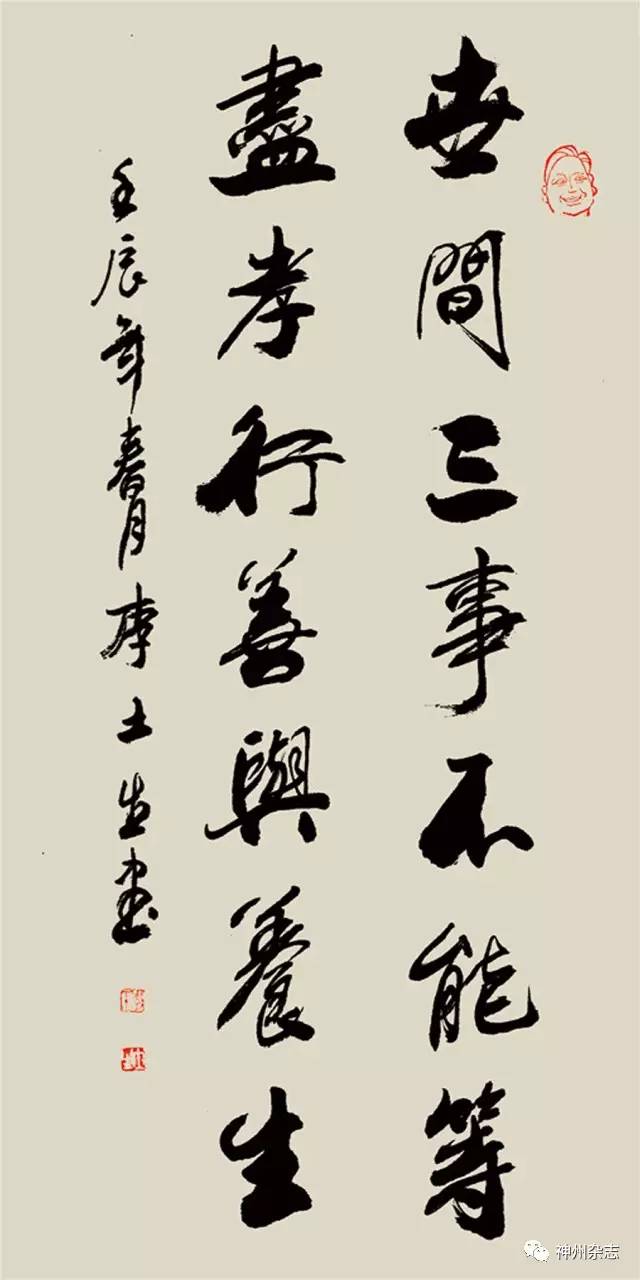 世間三事不能等
盡孝行善與養生
壬辰年春月李土生書
神州杂志